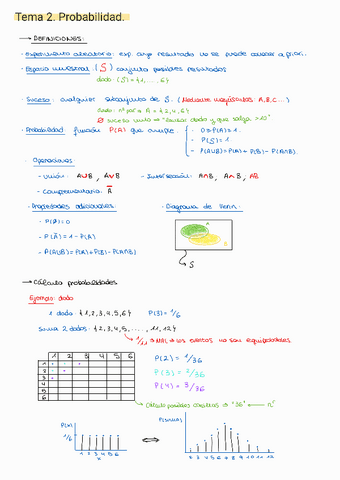 Tema 2. Probabilidad.
→ DEFINICIONES:
· Experimento aleatorio: exp. cuyo resultado no se puede conocer a priori.
· Espacio muestral: (S) conjunto posibles resultados
dado: (S) = {1, ..., 6}
· Suceso: cualquier subconjunto de S. (Mediante mayúsculas A, B, C...)
dado: nº par → A = {2, 4, 6}
∅ suceso nulo → "lanzar dado y que salga >10"
· Probabilidad: función P(A) que cumple.
- 0 ≤ P(A) ≤ 1.
- P(S) = 1
- P(A∪B) = P(A) + P(B) - P(A∩B).
· Operaciones:
- Unión: A∪B, A∨B
- Intersección: A∩B, A∧B, AB
- Complementario: Ā
· Propiedades adicionales:
- P(∅) = 0
- P(Ā) = 1 - P(A)
- P(A∪B) = P(A) + P(B) - P(A∩B)
· Diagrama de Venn.
A
S
→ Cálculo probabilidades
Ejemplo: dado
1 dado: {1, 2, 3, 4, 5, 6} P(3) = 1/6
Suma 2 dados: {2, 3, 4, 5, ..., 11, 12}
1/11 → MAL → los eventos no son equiprobables
1 2 3 4 5 6
1
2
3
4
5
6
P(2) = 1/36
P(3) = 2/36
P(4) = 3/36
"36"
P(x)
1/6
1 2 3 4 5 6
x
P(suma)
2 3 4 5 6 7 8 9 10 11 12